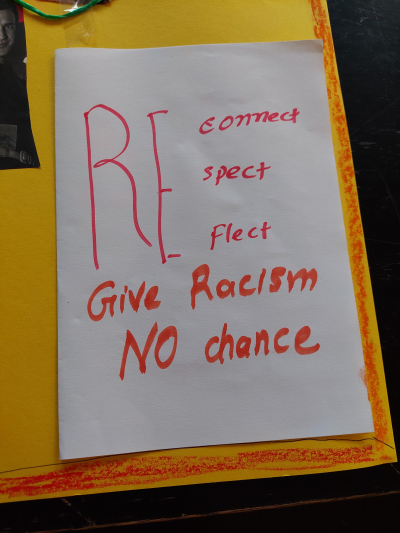 RE
connect
spect
flect
Give Racism
NO chance